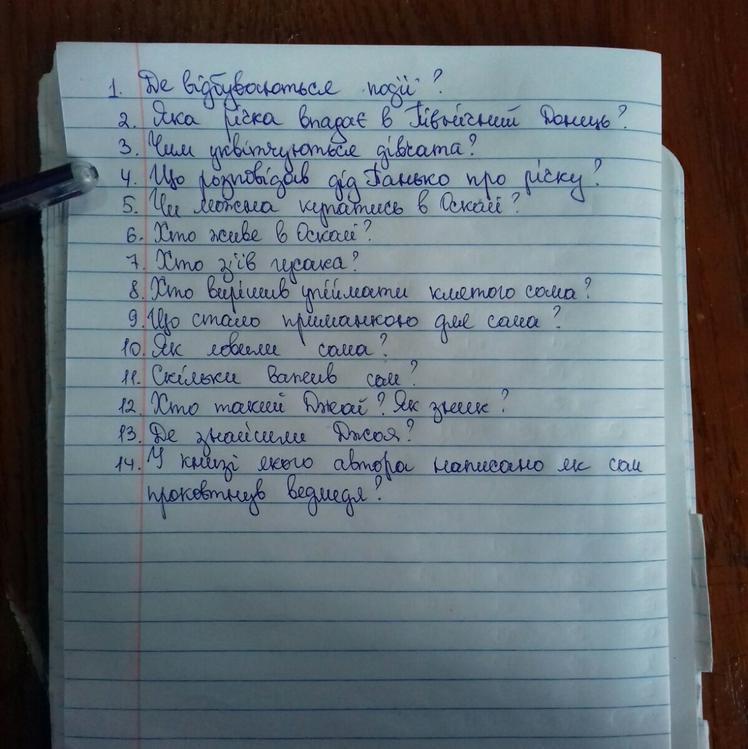 1. Де відбуваються події?
2. Яка річка впадає в Північний Донець?
3. Чим уквітчуються дівчата?
4. Що розповідав дід Панько про річку?
5. Чи можна купатись в Осколі?
6. Хто живе в Осколі?
7. Хто з'їв гусака?
8. Хто вирішив упіймати клятого сома?
9. Що стало приманкою для сома?
10. Як ловили сома?
11. Скільки важив сом?
12. Хто такий Джой? Як зник?
13. Де знайшли Джоя?
14. У книзі якого автора написано як сом
проковтнув ведмедя?